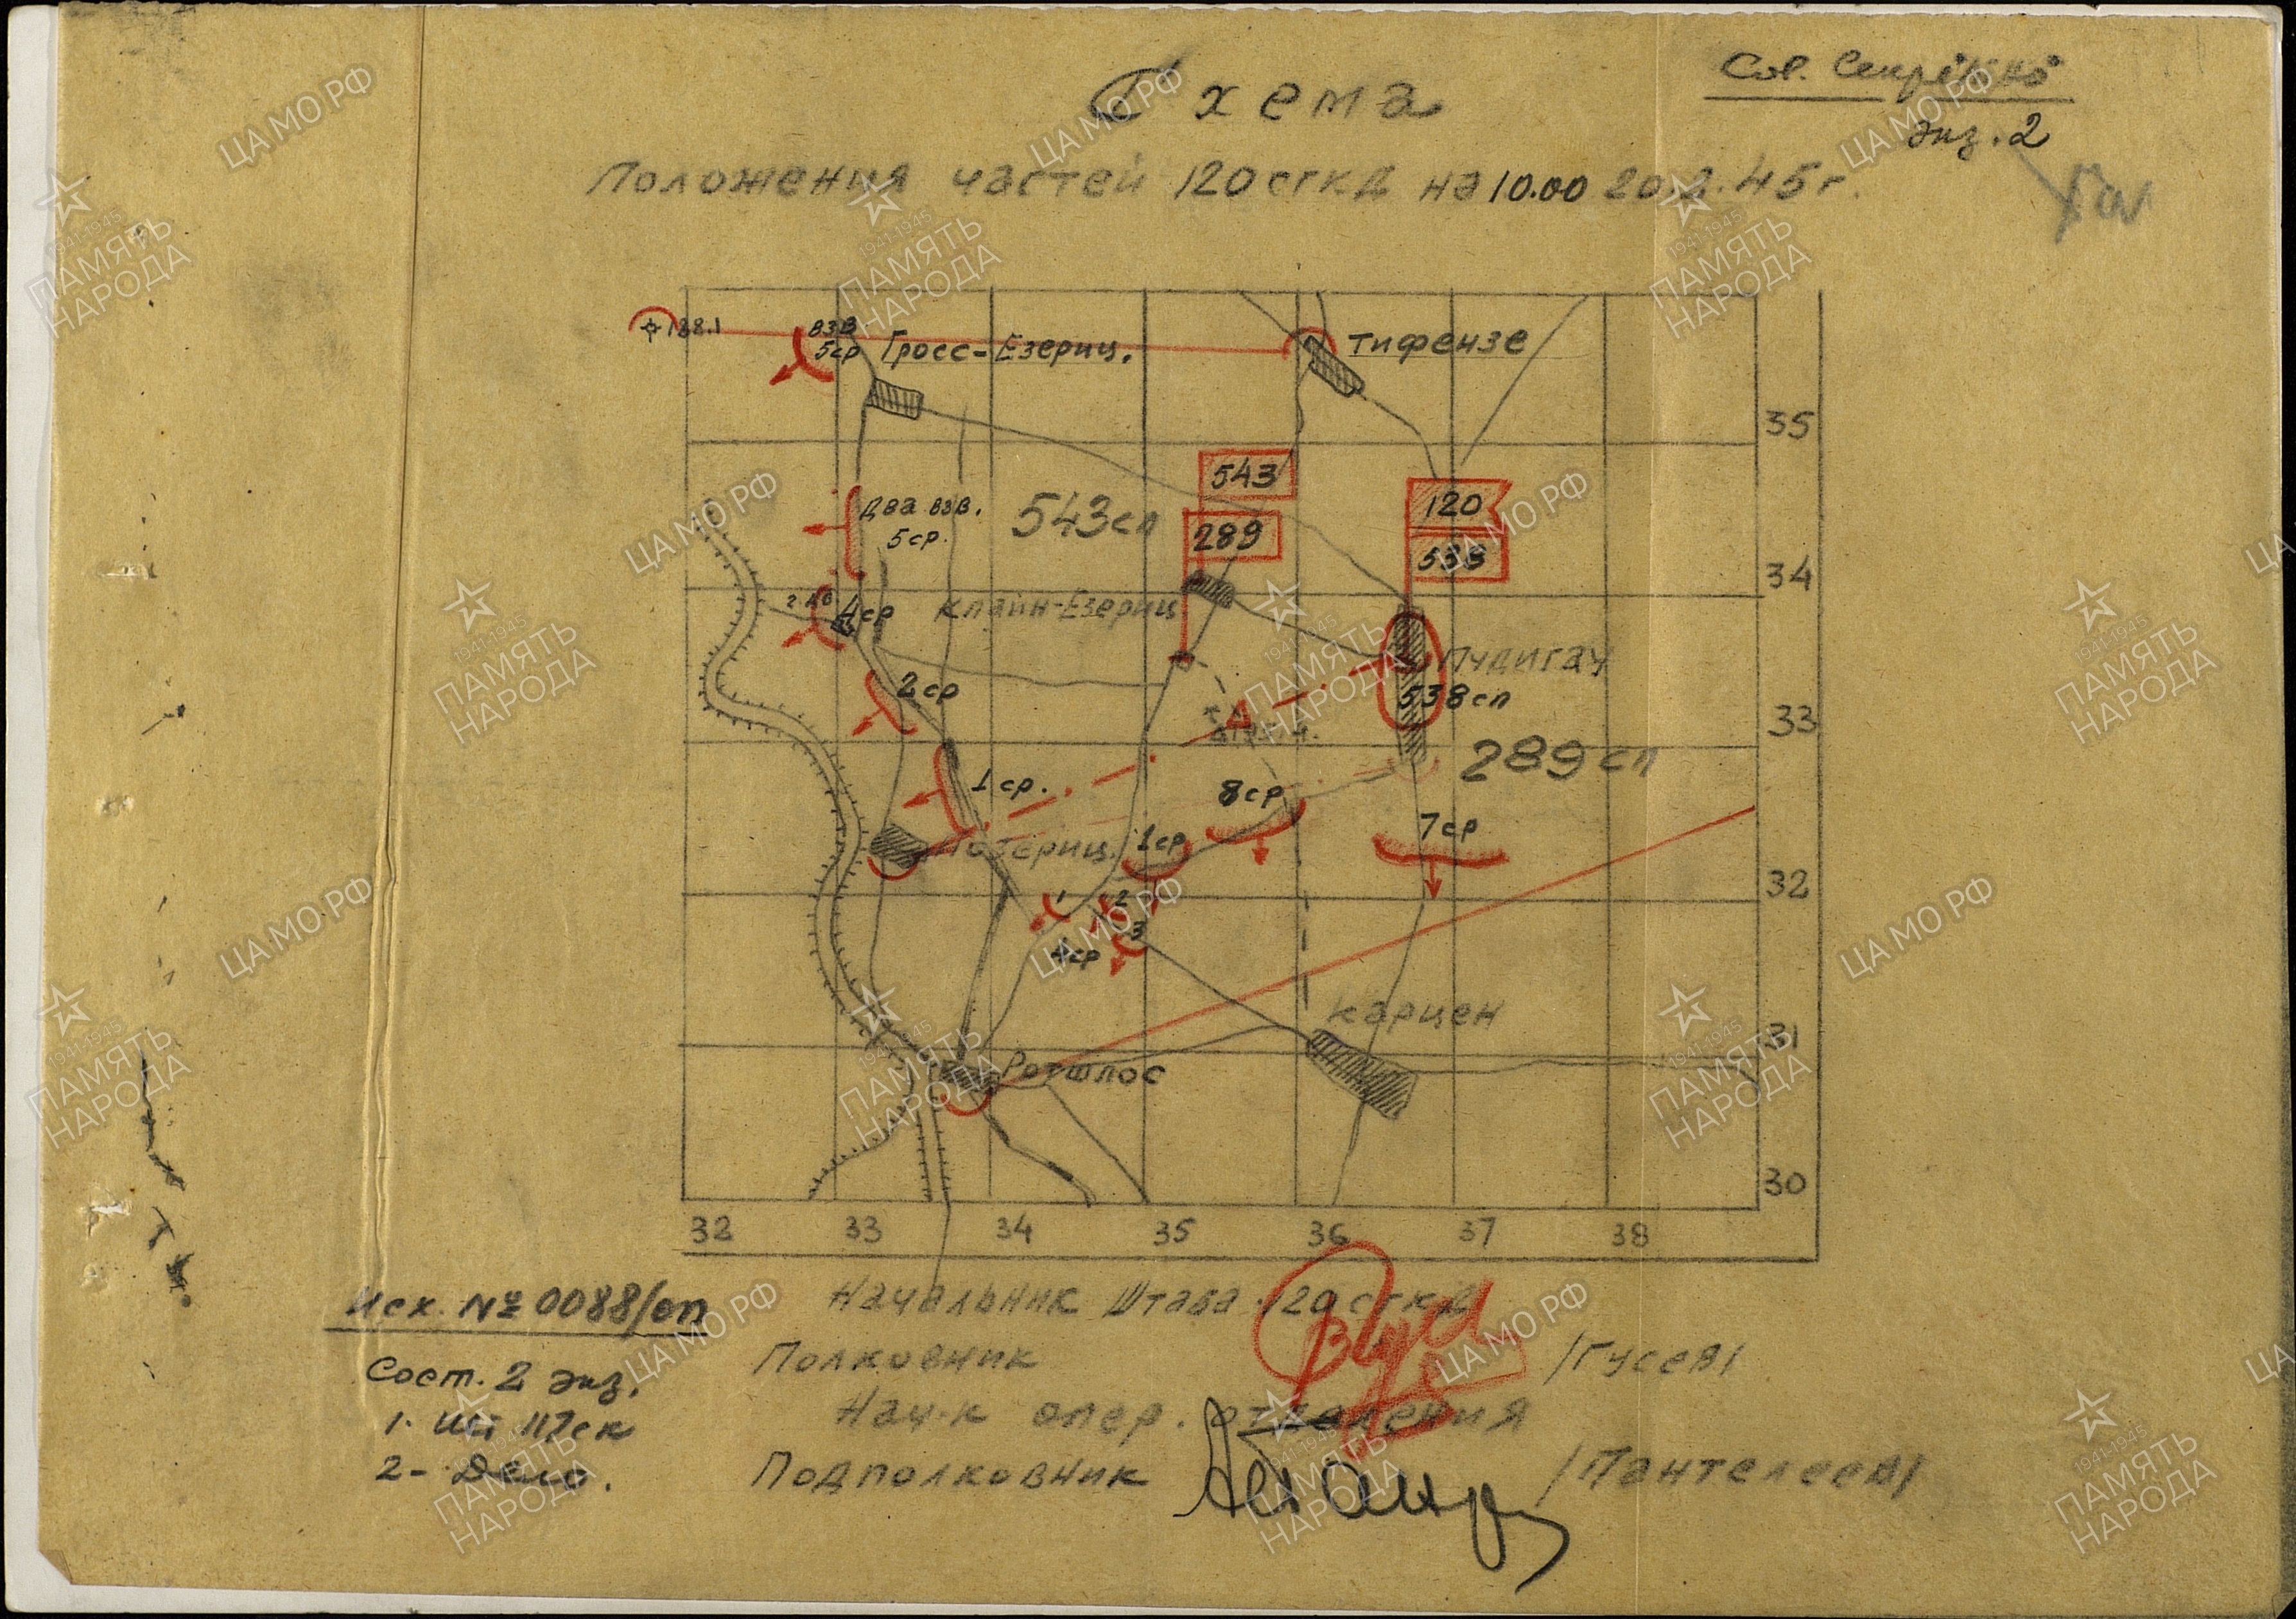 Сов. Секретно
экз. 2
Схема
Положения частей 120 сгкд на 10.00 20.2.45г.
188.1
взв
5ср
Гросс-Езериц.
Тифензе
35
543
два взв.
5ср.
543сп
289
120
538
34
4ср
Клайн-Езериц
Пудигау
2ср
538сп
33
289сп
1ср.
8ср
7ср
1ср
32
1
2
3
4ср
Карцен
31
Ротшлос
30
32 33 34 35 36 37 38
Исх. № 0088/оп
Сост. 2 экз.
1. 117ск
2- Дело.
Начальник Штаба 120 сгкд
Полковник /Гусев/
Нач-к опер. отделения
Подполковник /Пантелеев/
ЦА МО РФ
1941-1945
ПАМЯТЬ
НАРОДА